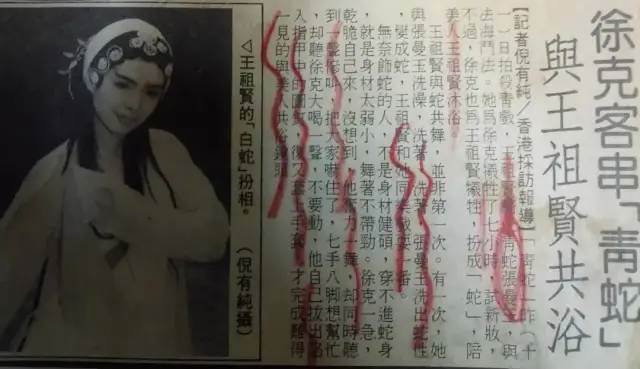 徐克客串「青蛇」
與王祖賢共浴
【記者倪有純/香港採訪報導】「青蛇」昨(十
一)日拍殺青戲,王青蛇張曼玉,與
法海鬥法。她為徐克犧牲了七小時試新妝,
不過,徐克也為王祖賢犧牲,扮成「蛇」,陪
美人王祖賢沐浴。
王祖賢與蛇共舞,並非第一次。有一次,她
與張曼玉洗澡,洗著、洗著,張曼玉洗出蛇性
變成蛇,王祖賢和她同戲耍一番。
無奈飾蛇的人,不是身材健碩,穿不進蛇身
就是身材太弱小,舞著不帶勁。徐克一急,
乾脆自己來,沒想到,他奮力一舞,却同時聽
到一聲慘叫,把大家嚇住了,七手八脚想幫忙
却聽徐克大喝一聲,不要動,他自己拔出陷
入指甲中的圖釘,復又套上手套,才完成難得
一見的與美人共浴鏡頭。
◁王祖賢的「白蛇」扮相。 (倪有純攝)